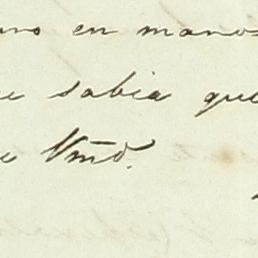 en manos
sabia que
Vmd.